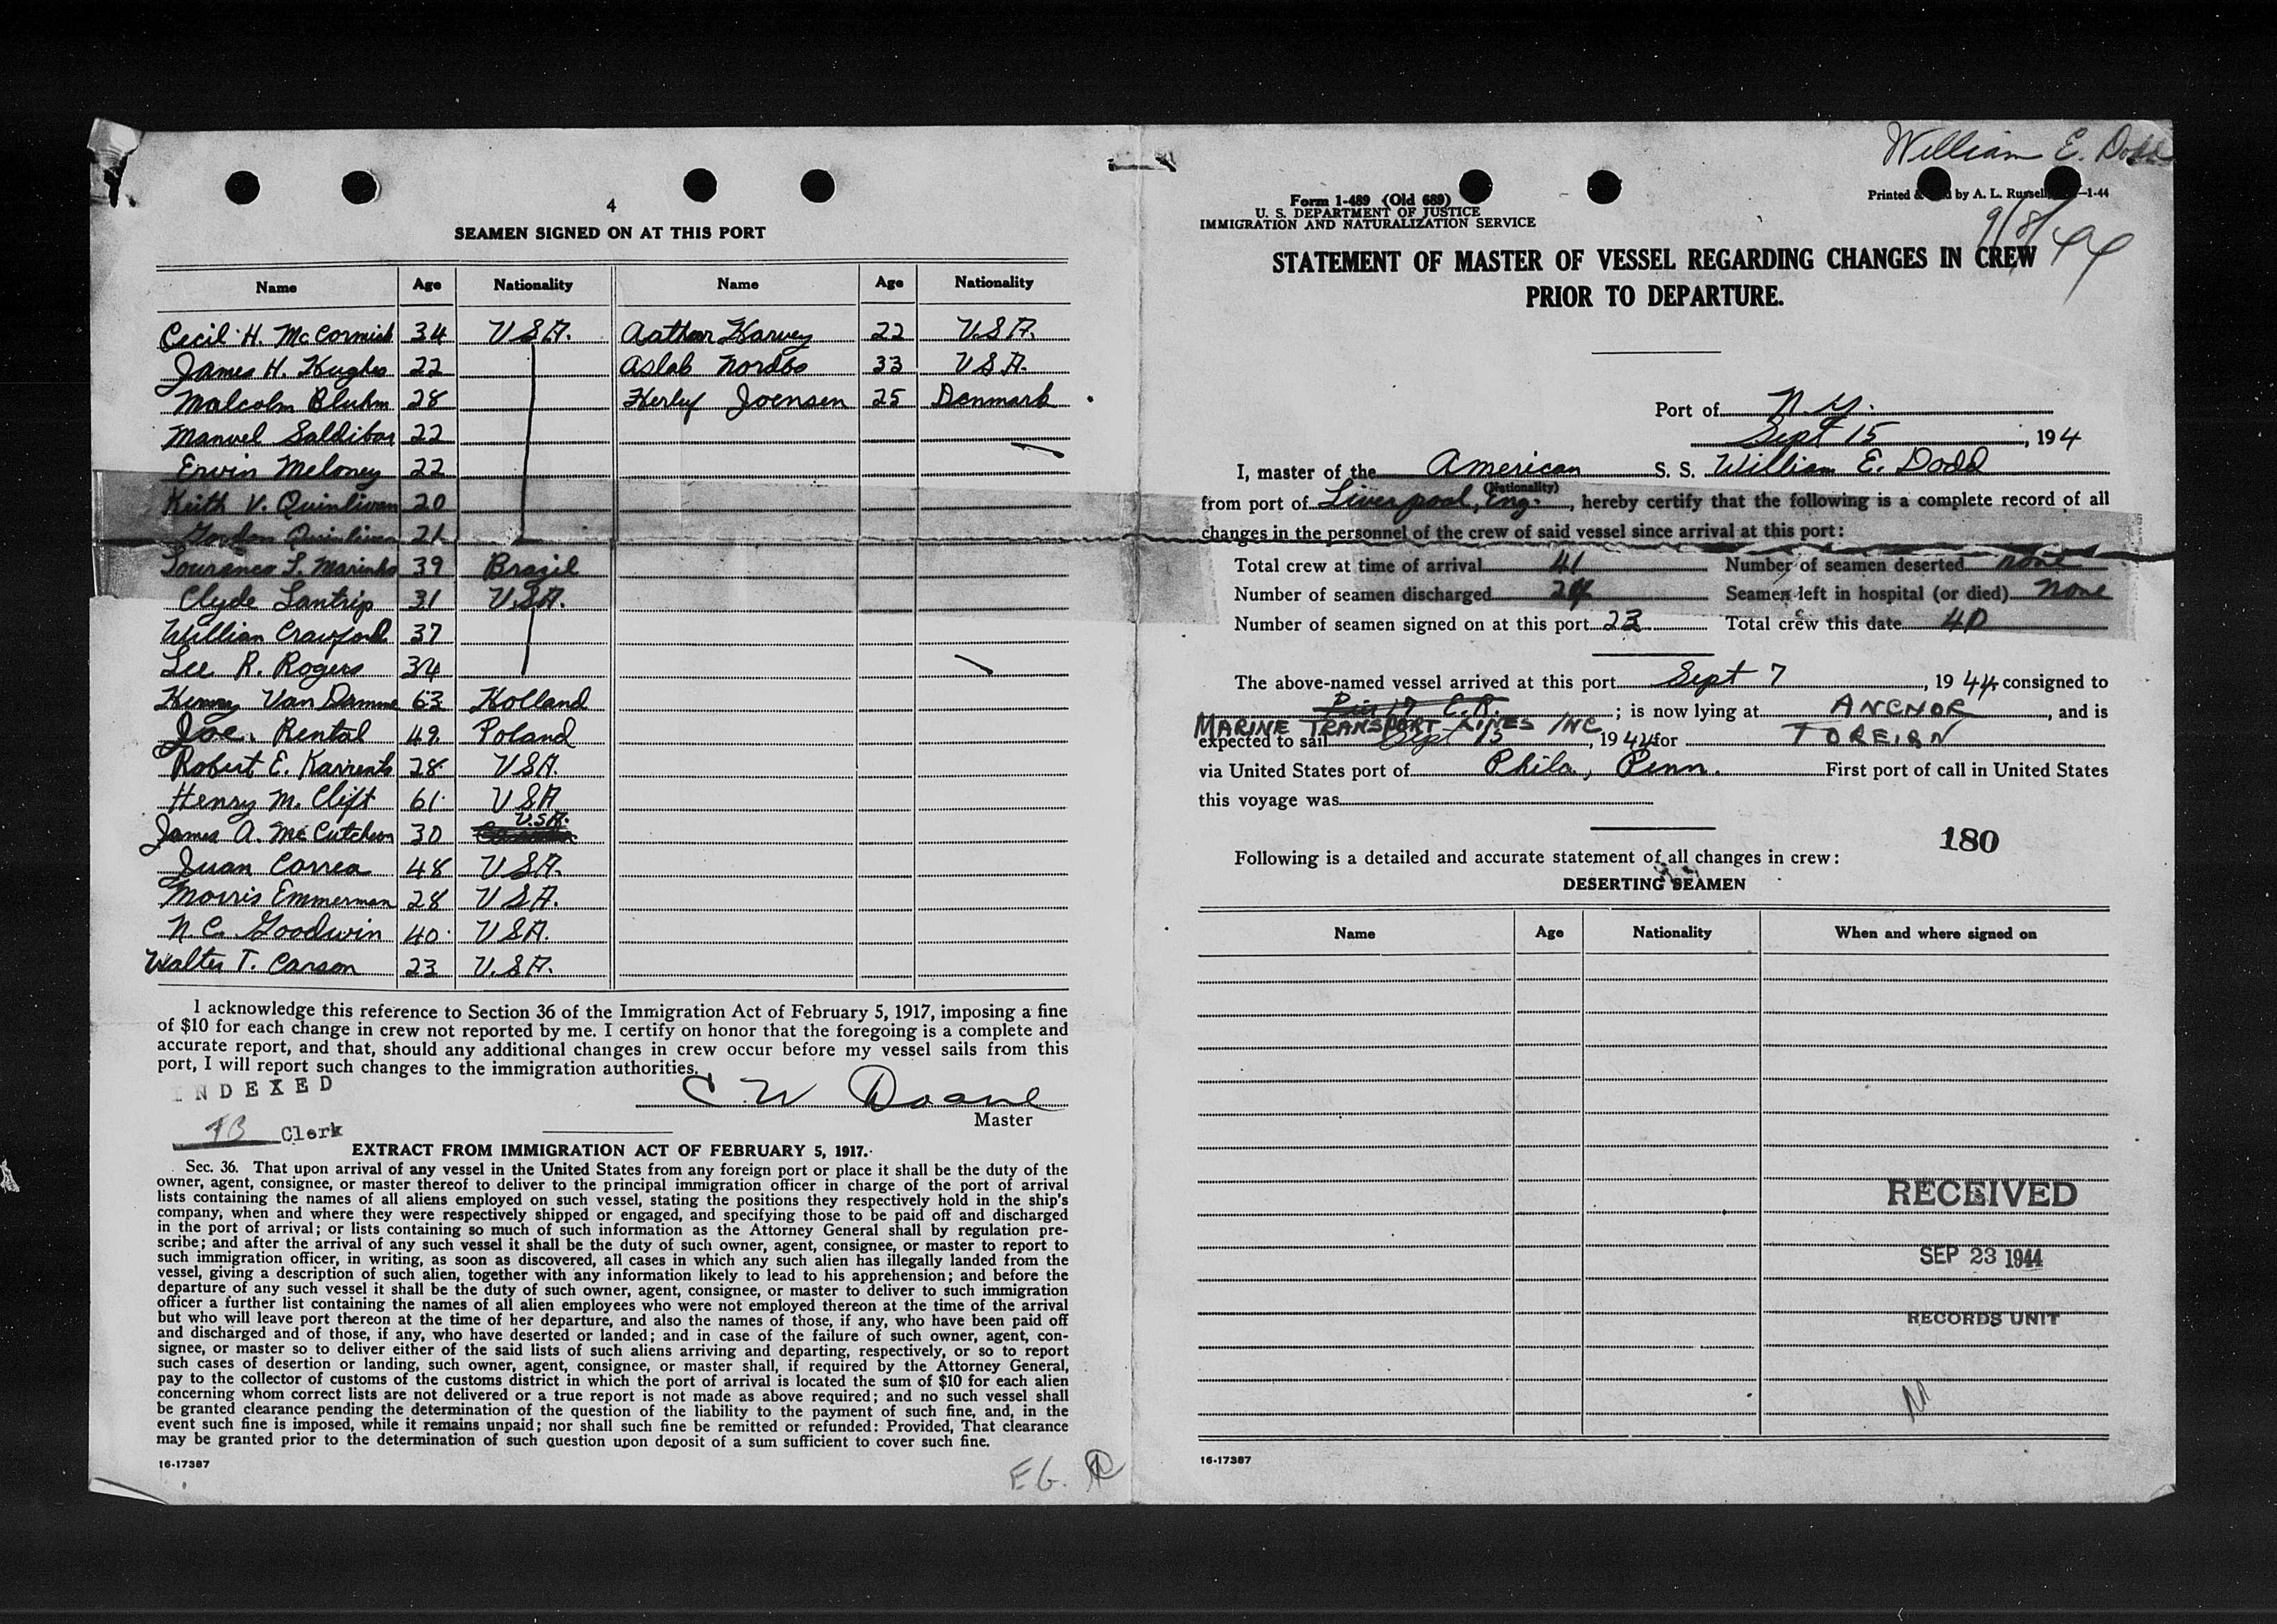 4
SEAMEN SIGNED ON AT THIS PORT
Name Age Nationality Name Age Nationality
Cecil H. McCormick 34 USA. Arthur Harvey 22 U.S.A.
James H. Hughes 22 Aslab Nordbo 33 USA.
Malcolm Bluhm 28 Joensen 25 Denmark
Manuel Saldibar 22
Ervin Meloney 22
Keith V. Quinlivan 20
Gordon Quinlivan 21
Marinho 39 Brazil
Clyde Lantrip 31 U.S.A.
William Crawford 37
Lee R. Rogers 34
Henry Van Damme 63 Holland
Joe. Rental 49 Poland
Robert E. 28 USA.
Henry M. Clift 61 USA
James A. McCutcheon 30 U.S.A.
Juan Correa 48 USA.
Morris Emmerman 28 USA.
N. C. Goodwin 40 USA.
Walter T. Carson 23 U.S.A.
I acknowledge this reference to Section 36 of the Immigration Act of February 5, 1917, imposing a fine
of $10 for each change in crew not reported by me. I certify on honor that the foregoing is a complete and
accurate report, and that, should any additional changes in crew occur before my vessel sails from this
port, I will report such changes to the immigration authorities.
INDEXED
C W Doane
Master
Clerk
EXTRACT FROM IMMIGRATION ACT OF FEBRUARY 5, 1917.
Sec. 36. That upon arrival of any vessel in the United States from any foreign port or place it shall be the duty of the
owner, agent, consignee, or master thereof to deliver to the principal immigration officer in charge of the port of arrival
lists containing the names of all aliens employed on such vessel, stating the positions they respectively hold in the ship's
company, when and where they were respectively shipped or engaged, and specifying those to be paid off and discharged
in the port of arrival; or lists containing so much of such information as the Attorney General shall by regulation pre-
scribe; and after the arrival of any such vessel it shall be the duty of such owner, agent, consignee, or master to report to
such immigration officer, in writing, as soon as discovered, all cases in which any such alien has illegally landed from the
vessel, giving a description of such alien, together with any information likely to lead to his apprehension; and before the
departure of any such vessel it shall be the duty of such owner, agent, consignee, or master to deliver to such immigration
officer a further list containing the names of all alien employees who were not employed thereon at the time of the arrival
but who will leave port thereon at the time of her departure, and also the names of those, if any, who have been paid off
and discharged and of those, if any, who have deserted or landed; and in case of the failure of such owner, agent, con-
signee, or master so to deliver either of the said lists of such aliens arriving and departing, respectively, or so to report
such cases of desertion or landing, such owner, agent, consignee, or master shall, if required by the Attorney General,
pay to the collector of customs of the customs district in which the port of arrival is located the sum of $10 for each alien
concerning whom correct lists are not delivered or a true report is not made as above required; and no such vessel shall
be granted clearance pending the determination of the question of the liability to the payment of such fine, and, in the
event such fine is imposed, while it remains unpaid; nor shall such fine be remitted or refunded: Provided, That clearance
may be granted prior to the determination of such question upon deposit of a sum sufficient to cover such fine.
16-17387
E G.
William E. Dodd
Form I-489 (Old 689)
U. S. DEPARTMENT OF JUSTICE
IMMIGRATION AND NATURALIZATION SERVICE
Printed by A. L. Russell -1-44
9/8/44
STATEMENT OF MASTER OF VESSEL REGARDING CHANGES IN CREW
PRIOR TO DEPARTURE.
Port of N.Y.
Sept 15, 194 4
I, master of the American S. S. William E. Dodd
(Nationality)
from port of Liverpool, Eng., hereby certify that the following is a complete record of all
changes in the personnel of the crew of said vessel since arrival at this port:
Total crew at time of arrival 41 Number of seamen deserted none
Number of seamen discharged 24 Seamen left in hospital (or died) none
Number of seamen signed on at this port 23 Total crew this date 40
The above-named vessel arrived at this port Sept 7, 1944 consigned to
Pier 17 E.R.; is now lying at ANCHOR, and is
MARINE TRANSPORT LINES INC
expected to sail Sept 15, 1944 for FOREIGN
via United States port of Phila, Penn. First port of call in United States
this voyage was
180
Following is a detailed and accurate statement of all changes in crew:
DESERTING SEAMEN
Name Age Nationality When and where signed on
RECEIVED
SEP 23 1944
RECORDS UNIT
16-17387